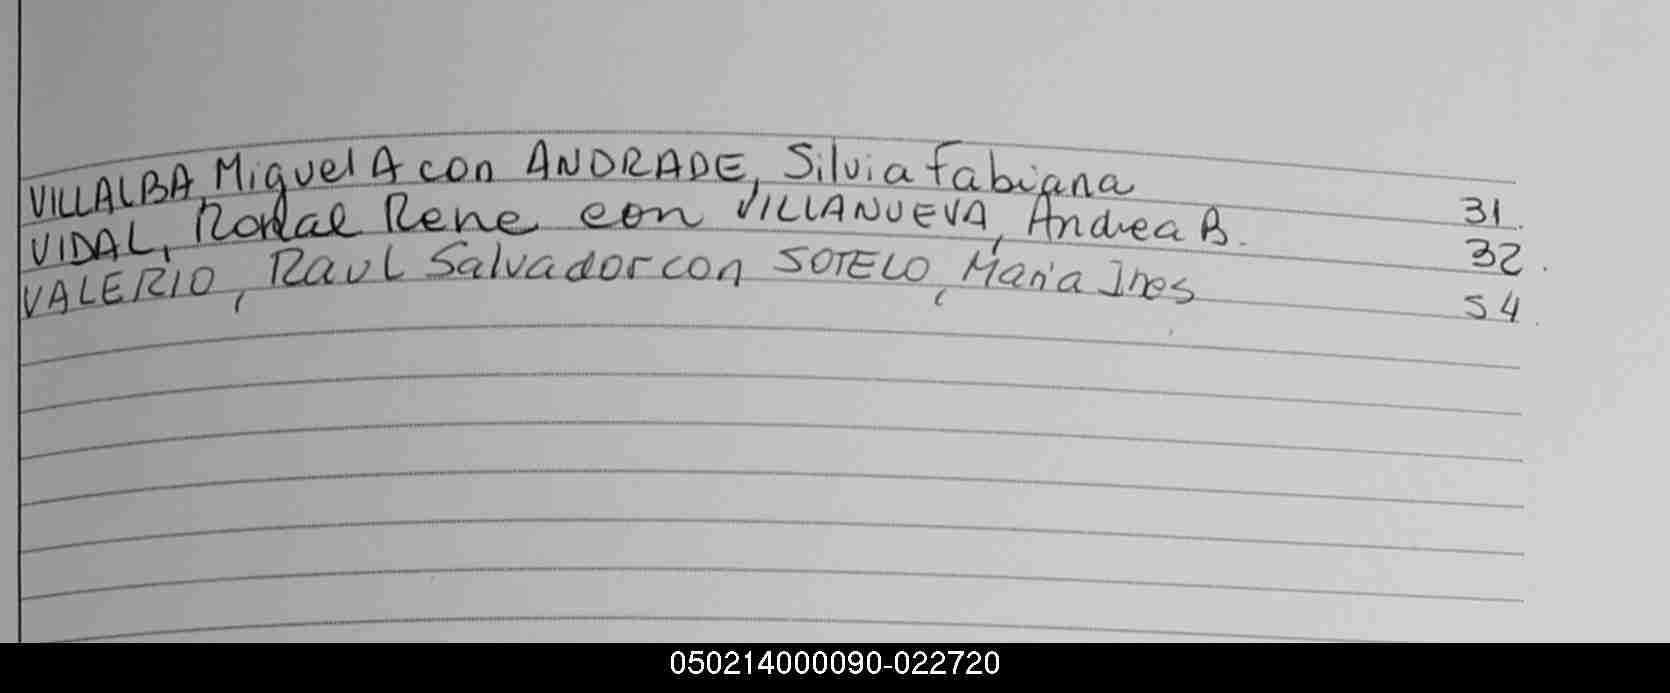 VILLALBA, Miguel A con ANDRADE, Silvia Fabiana 31.
VIDAL, Ronal Rene con VILLANUEVA, Andrea B. 32.
VALERIO, Raul Salvador con SOTELO, Maria Ines 54.
050214000090-022720